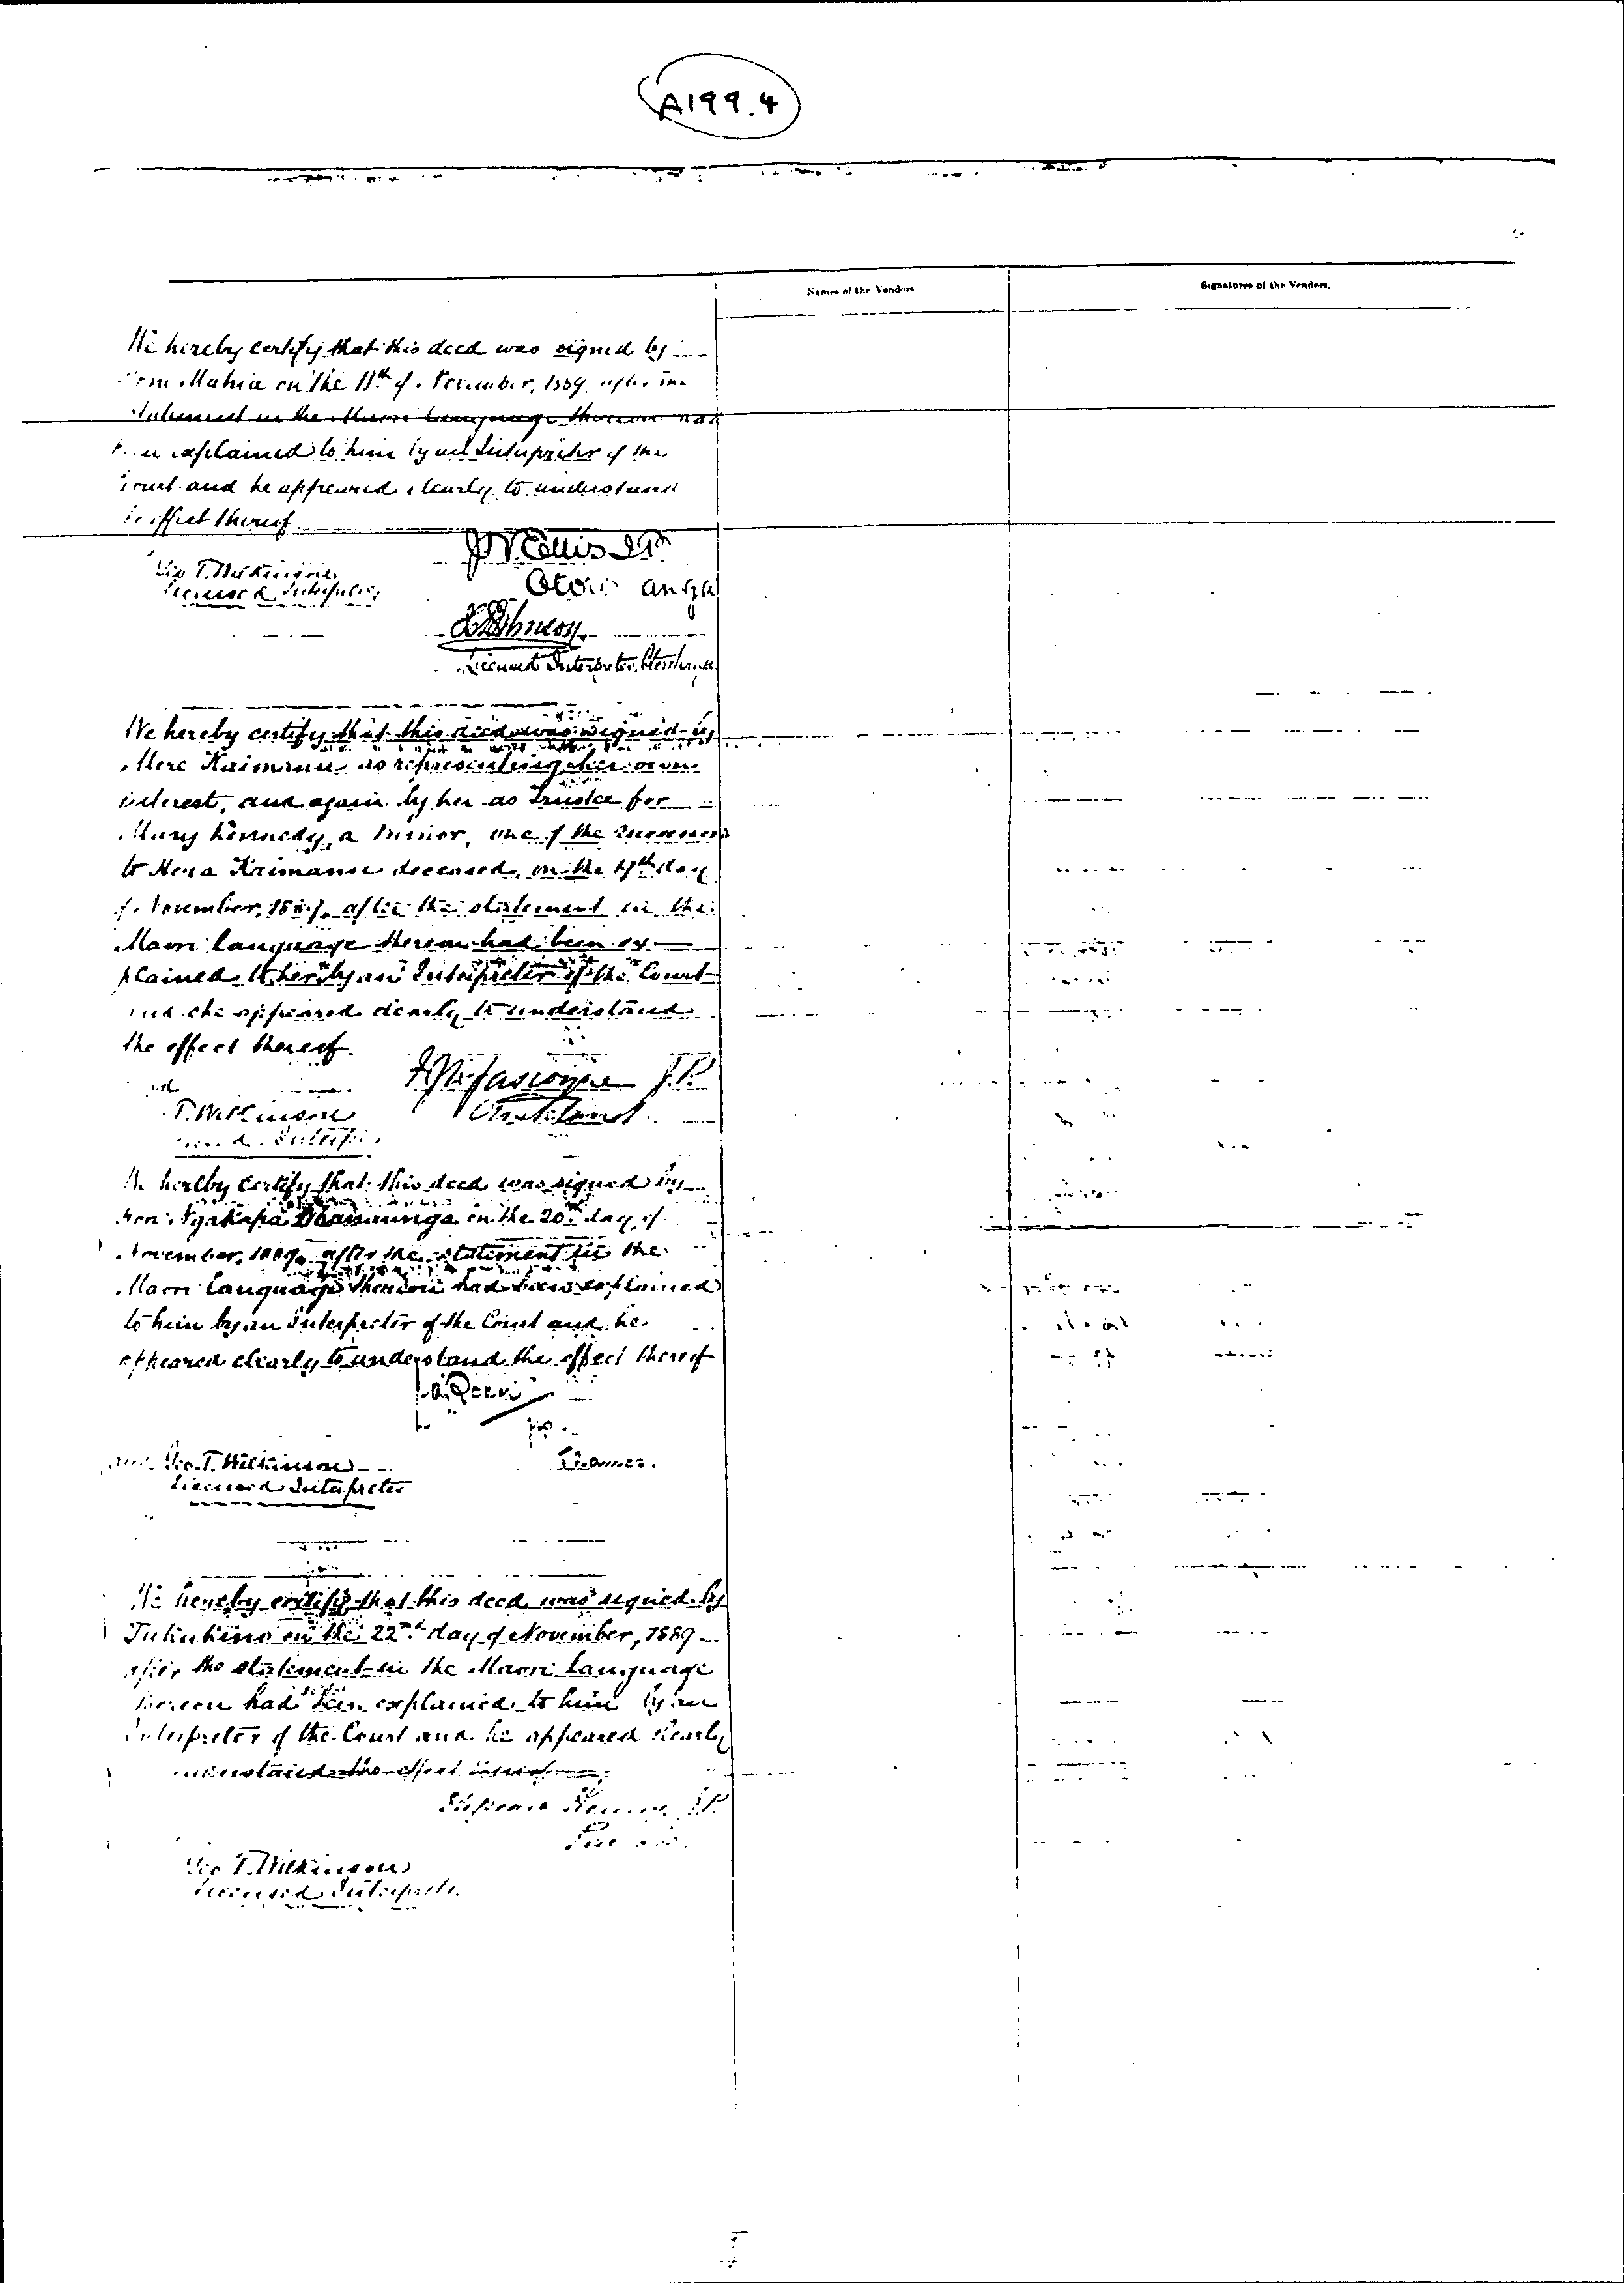 A199.4
Names of the Vendors
Signatures of the Vendors.
We hereby certify that this deed was signed by
Mahia on the 18th of November, 1889, after the
statement in the Maori language thereon had
been explained to him by an Interpreter of the
Court and he appeared clearly to understand
the effect thereof
Geo. T. Wilkinson
Licensed Interpreter
J W Ellis J.P.
Otorohanga
Johnson
Licensed Interpreter
We hereby certify that this deed was signed by
Mere Kaimanu as representing her own
interest, and again by her as Trustee for
Mary Kennedy, a minor, one of the successors
to Hera Kaimanu deceased, on the 19th day
of November, 1889, after the statement in the
Maori language thereon had been ex-
plained to her by an Interpreter of the Court
and she appeared clearly to understand
the effect thereof.
J.P.
Auckland
T. Wilkinson
We hereby certify that this deed was signed by
Ngakapa Whanaunga on the 20th day of
November, 1889, after the statement in the
Maori language thereon had been explained
to him by an Interpreter of the Court and he
appeared clearly to understand the effect thereof
Thames.
Geo. T. Wilkinson
Licensed Interpreter
We hereby certify that this deed was signed by
Tukukino on the 22nd day of November, 1889
after the statement in the Maori language
thereon had been explained to him by an
Interpreter of the Court and he appeared clearly
understand the effect thereof
J.P.
Geo T. Wilkinson
Licensed Interpreter